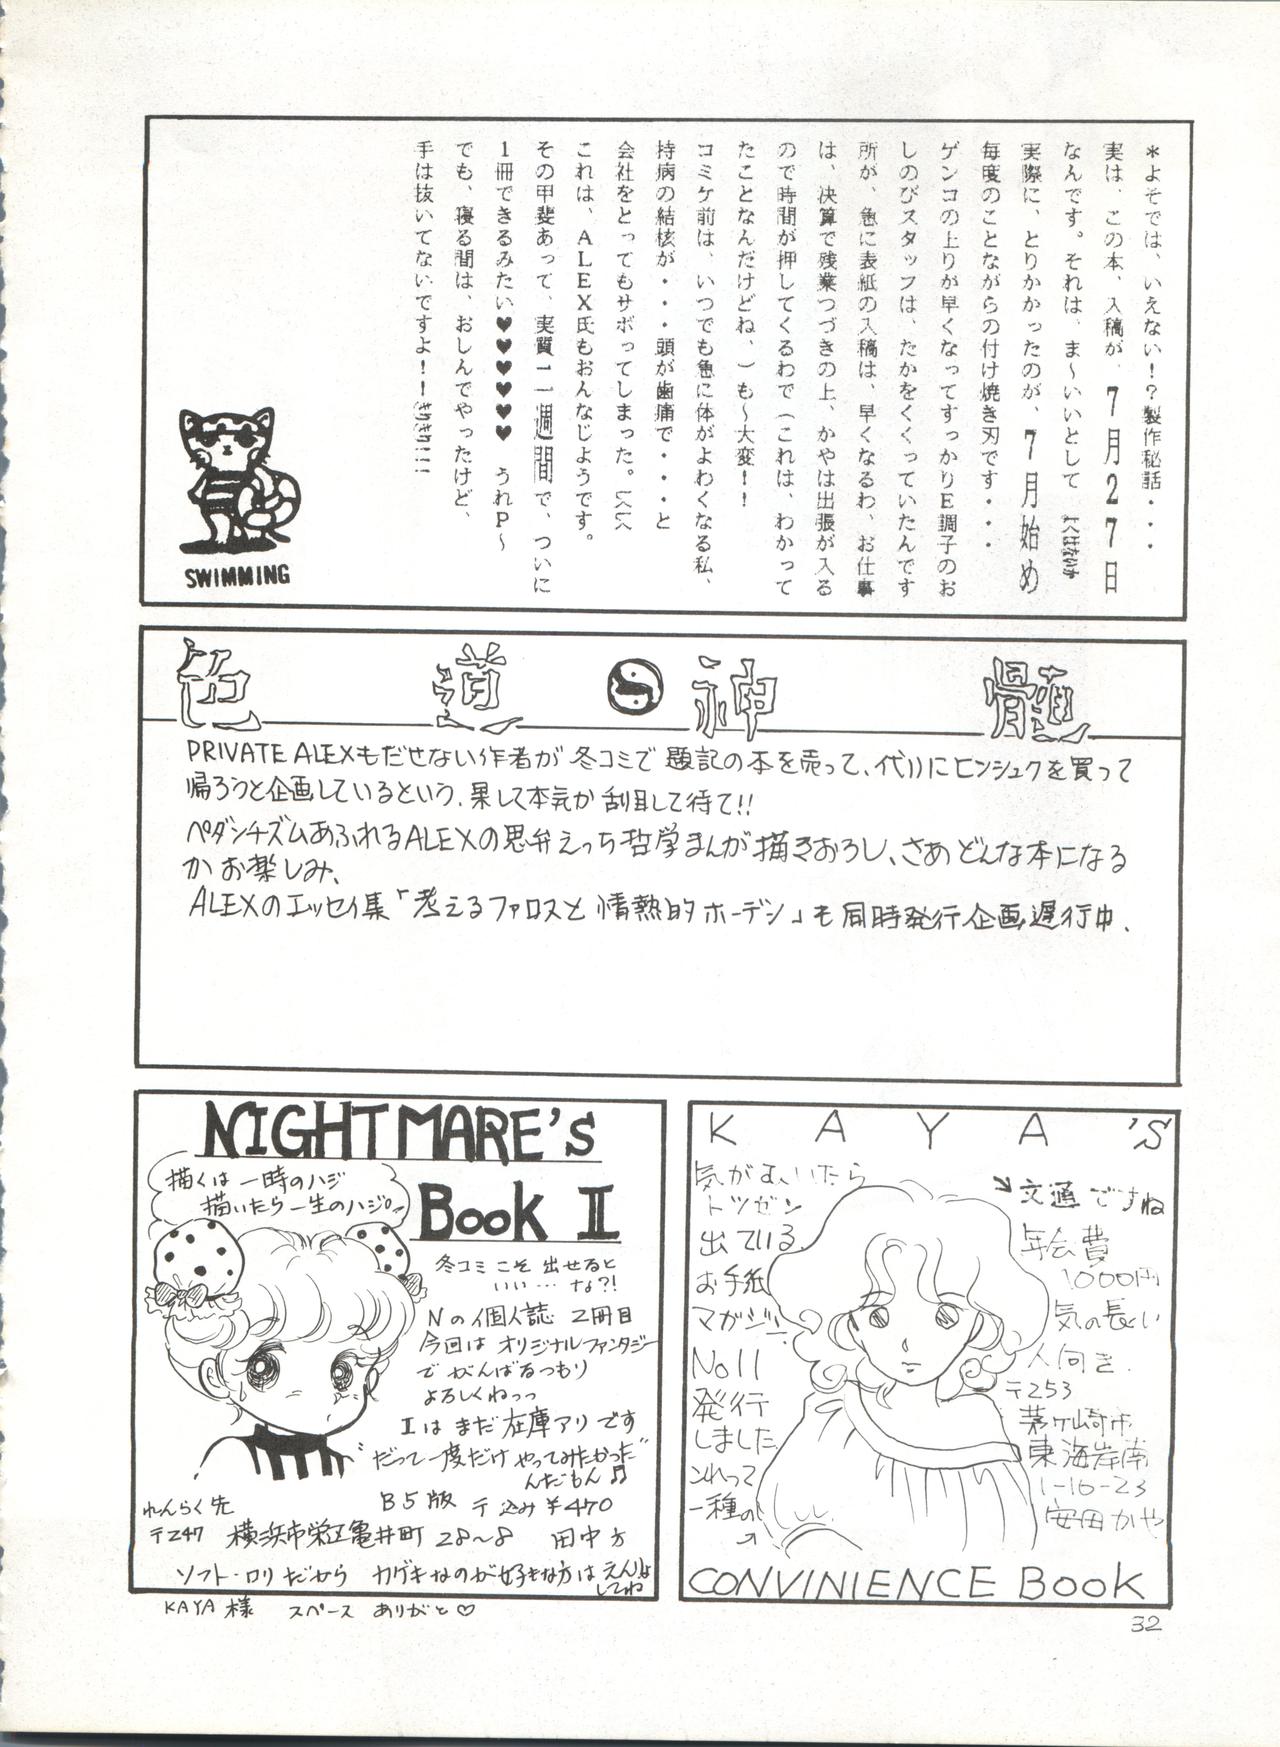 *よそでは、いえない！？製作秘話・・・
実は、この本、入稿が、7月27日
なんです。それは、ま～いいとして
実際に、とりかかったのが、7月始め
毎度のことながらの付け焼き刃です・・・
ゲンコの上りが早くなってすっかりE調子のお
しのびスタッフは、たかをくくっていたんです
所が、急に表紙の入稿は、早くなるわ、お仕事
は、決算で残業つづきの上、かやは出張が入る
ので時間が押してくるわで（これは、わかって
たことなんだけどね、）も～大変！！
コミケ前は、いつでも急に体がよわくなる私、
持病の結核が・・・頭が歯痛で・・・と
会社をとってもサボってしまった。
これは、ALEX氏もおんなじようです。
その甲斐あって、実質二週間で、ついに
1冊できるみたい♥♥♥♥♥♥ うれP～
でも、寝る間は、おしんでやったけど、
手は抜いてないですよ！！
SWIMMING
色道☯神髄
PRIVATE ALEXもだせない作者が冬コミで題記の本を売って、代りにヒンシュクを買って
帰ろうと企画しているという、果して本気か刮目して待て!!
ペダンチズムあふれるALEXの思弁えっち哲学まんが描きおろし、さあどんな本になる
かお楽しみ、
ALEXのエッセイ集「考えるファロスと情熱的ホーデン」も同時発行企画遅行中、
NIGHTMARE's
Book II
描くは一時のハジ
描いたら一生のハジ。
冬コミこそ出せると
いい…な?!
Nの個人誌 2冊目
今回はオリジナルファンタジー
でがんばるつもり
よろしくねっっ
Iはまだ在庫アリです
"だって一度だけやってみたかった"
んだもん♫
B5版 〒込み¥470
れんらく先
〒247 横浜市栄区亀井町28～8 田中方
ソフト・ロリだから カゲキなのが好きな方はえんりょ
してね
KAYA様 スペース ありがと♡
KAYA'S
気がむいたら
トツゼン
出ている
お手紙
マガジン
No11
発行
しました
これって
一種の
文通ですね
年会費
1000円
気の長い
人向き.
〒253
茅ヶ崎市
東海岸南
1-10-23
安田かや
CONVINIENCE Book
32